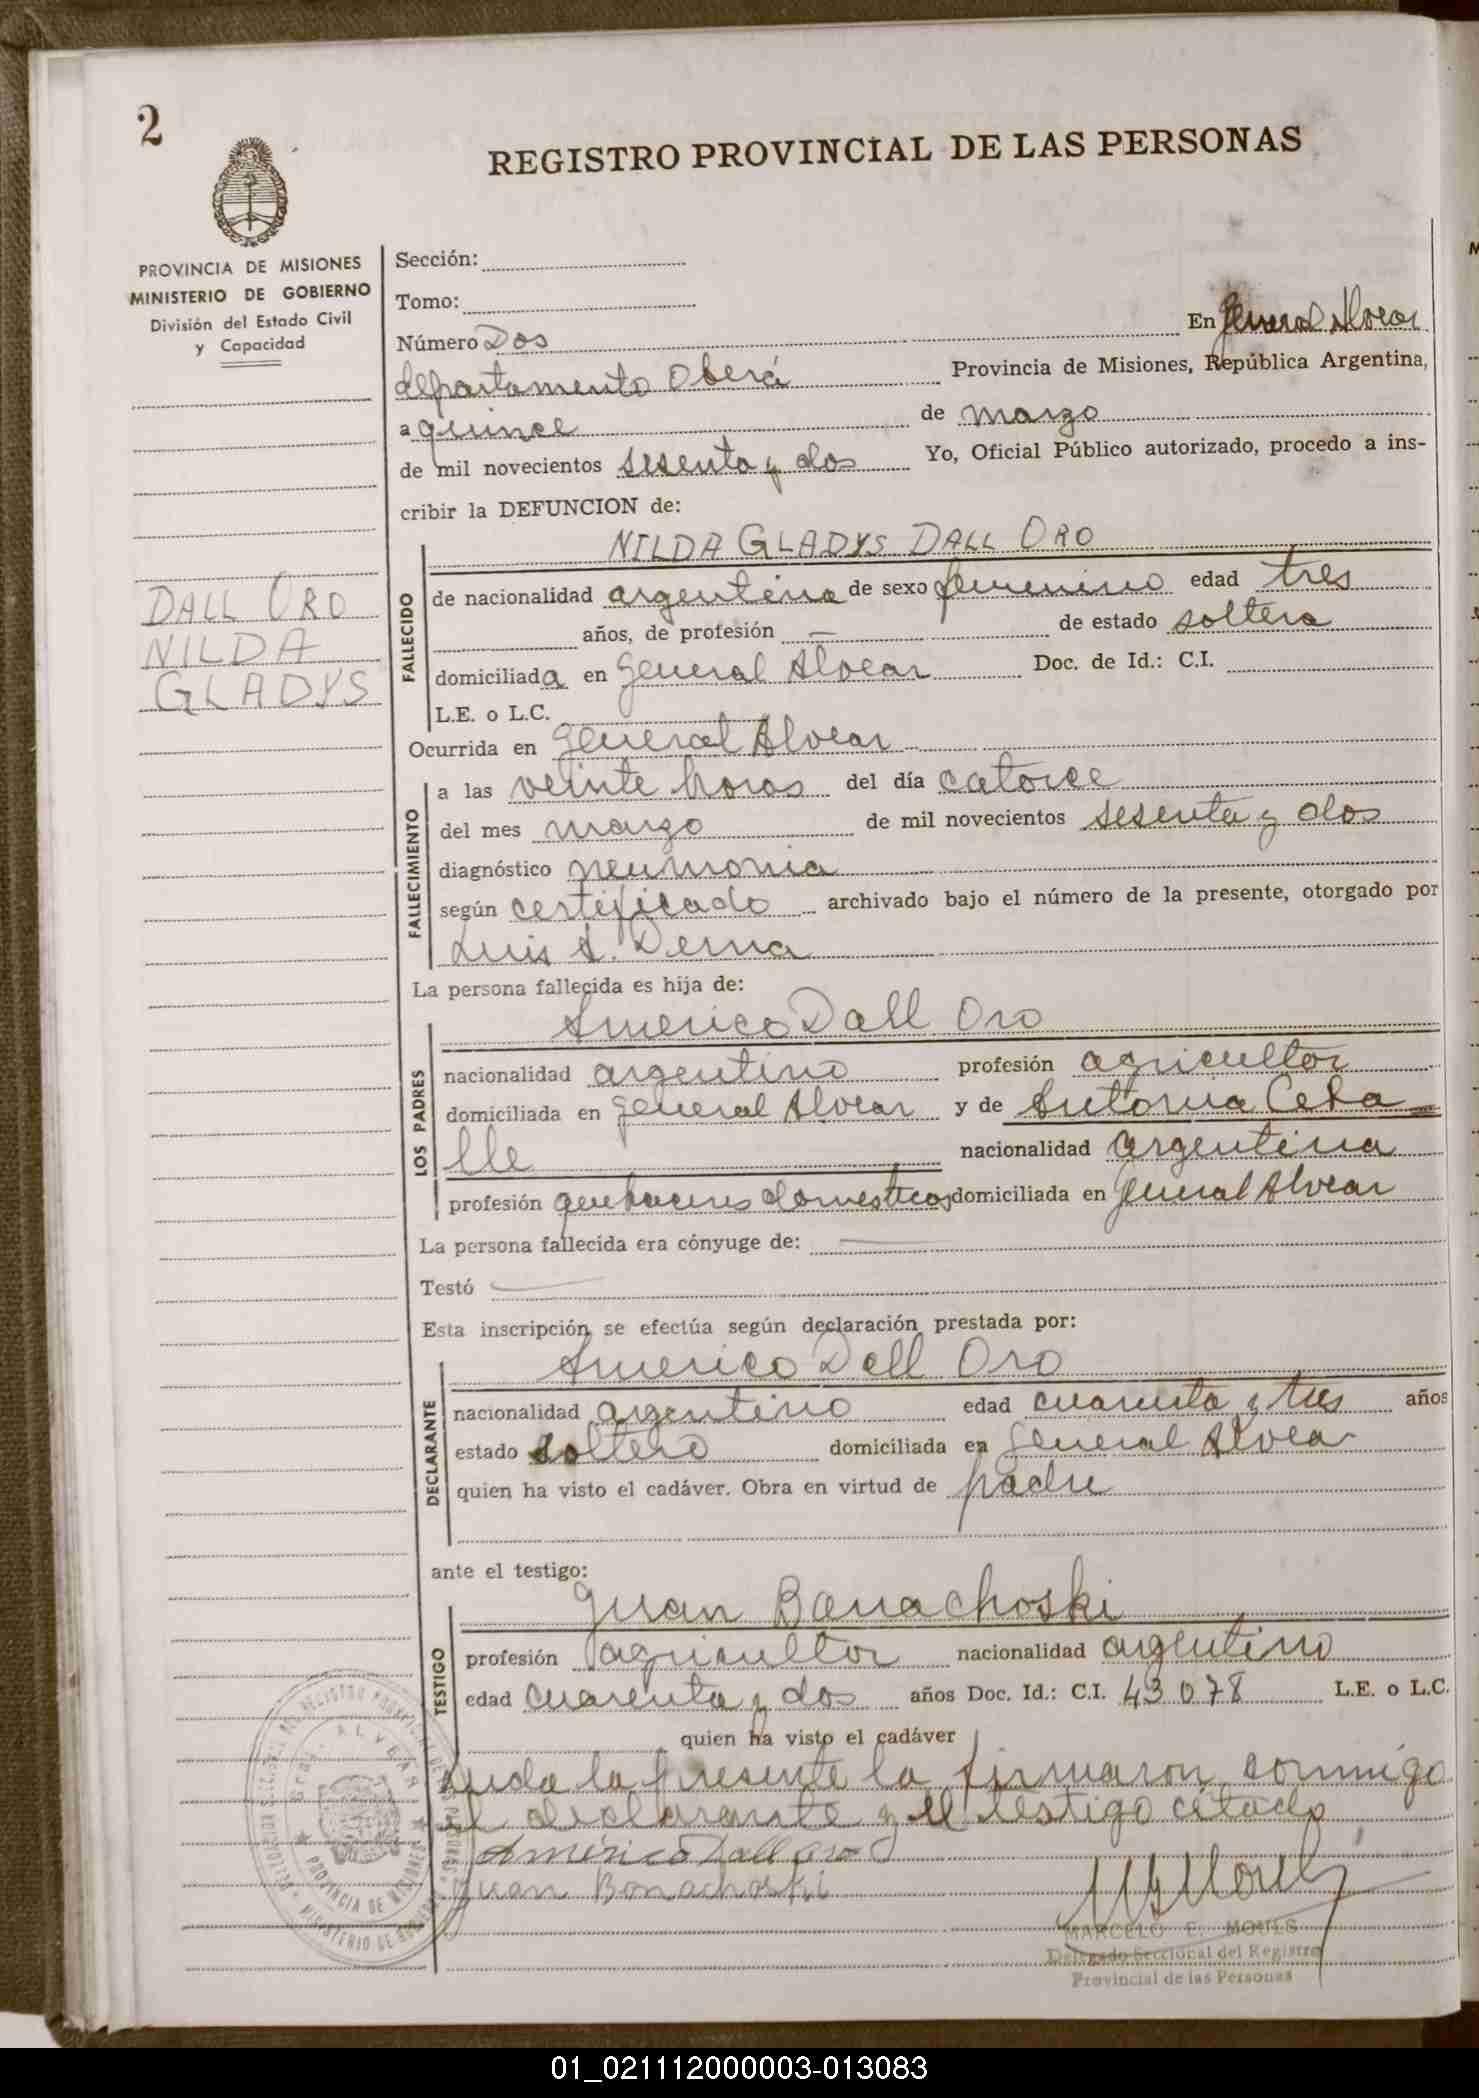 2
REGISTRO PROVINCIAL DE LAS PERSONAS
PROVINCIA DE MISIONES
MINISTERIO DE GOBIERNO
División del Estado Civil
y Capacidad
DALL ORO
NILDA
GLADYS
Sección:
Tomo:
Número Dos En General Alvear
departamento Oberá Provincia de Misiones, República Argentina,
a quince de marzo
de mil novecientos sesenta y dos Yo, Oficial Público autorizado, procedo a ins-
cribir la DEFUNCION de:
NILDA GLADYS DALL ORO
FALLECIDO
de nacionalidad argentina de sexo femenino edad tres
años, de profesión — de estado soltera
domiciliada en General Alvear Doc. de Id.: C.I.
L.E. o L.C.
Ocurrida en General Alvear
FALLECIMIENTO
a las veinte horas del día catorce
del mes marzo de mil novecientos sesenta y dos
diagnóstico neumonia
según certificado archivado bajo el número de la presente, otorgado por
Luis A. Derna
La persona fallecida es hija de:
Americo Dall Oro
LOS PADRES
nacionalidad argentino profesión agricultor
domiciliada en General Alvear y de Antonia Ceba
lle nacionalidad argentina
profesión quehaceres domesticos domiciliada en General Alvear
La persona fallecida era cónyuge de: —
Testó —
Esta inscripción se efectúa según declaración prestada por:
Americo Dall Oro
DECLARANTE
nacionalidad argentino edad cuarenta y tres años
estado soltero domiciliada en General Alvear
quien ha visto el cadáver. Obra en virtud de padre
ante el testigo:
Juan Banachoski
TESTIGO
profesión agricultor nacionalidad argentino
edad cuarenta y dos años Doc. Id.: C.I. 43078 L.E. o L.C.
quien ha visto el cadáver
la presente la firmaron conmigo
el declarante y el testigo citado
Américo Dall Oro
Juan Bonachoski
MARCELO E. MOULS
Delegado Seccional del Registro
Provincial de las Personas
GRAL. ALVEAR
PROVINCIA DE MISIONES
01_021112000003-013083